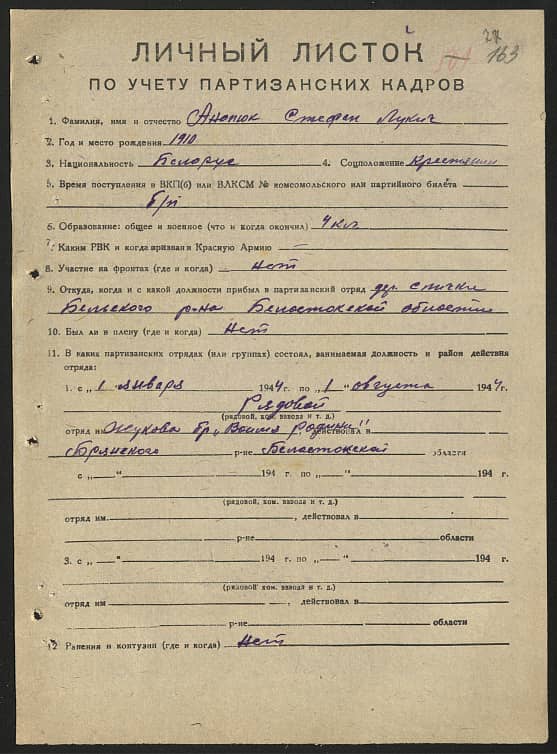 27
163
ЛИЧНЫЙ ЛИСТОК
ПО УЧЕТУ ПАРТИЗАНСКИХ КАДРОВ
1. Фамилия, имя и отчество Анопюк Стефан Лукич
2. Год и место рождения 1910
3. Национальность Белорус 4. Соцположение Крестьянин
5. Время поступления в ВКП(б) или ВЛКСМ № комсомольского или партийного билета
б/п
6. Образование: общее и военное (что и когда окончил) 4 кл
7. Каким РВК и когда призван в Красную Армию —
8. Участие на фронтах (где и когда) Нет
9. Откуда, когда и с какой должности прибыл в партизанский отряд дер. Стички
Бельского р-на Белостокской области
10. Был ли в плену (где и когда) Нет
11. В каких партизанских отрядах (или группах) состоял, занимаемая должность и район действия
отряда:
1. с „ 1 января 1944 г. по „ 1 “ августа 1944 г.
Рядовой
(рядовой, ком. взвода и т. д.)
отряд им Жукова бр. „Воимя Родины“, действовал в
Брянского р-не Белостокской области
с „ — “ 194 г. по „ — “ 194 г.
(рядовой, ком. взвода и т. д.)
отряд им. , действовал в
р-не области
3. с „ — “ 194 г. по „ — “ 194 г.
(рядовой, ком. взвода и т. д.)
отряд им , действовал в
р-не области
12 Ранения и контузии (где и когда) Нет